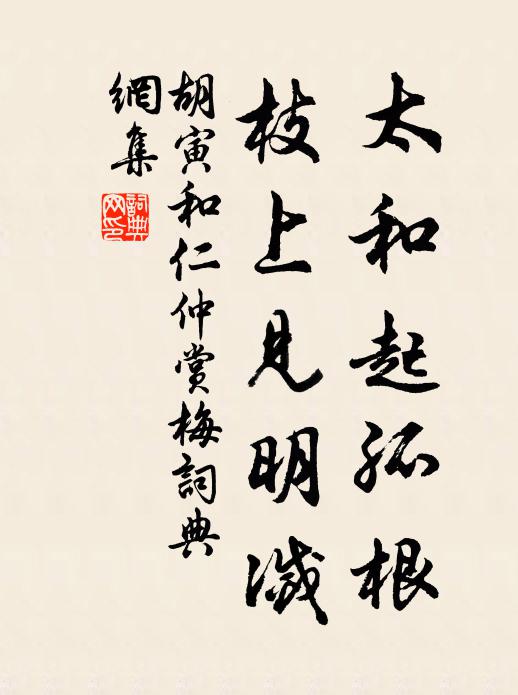 太和起孤根
枝上見明滅
胡寅和仁仲賞梅詞典
網集
詞典
网印